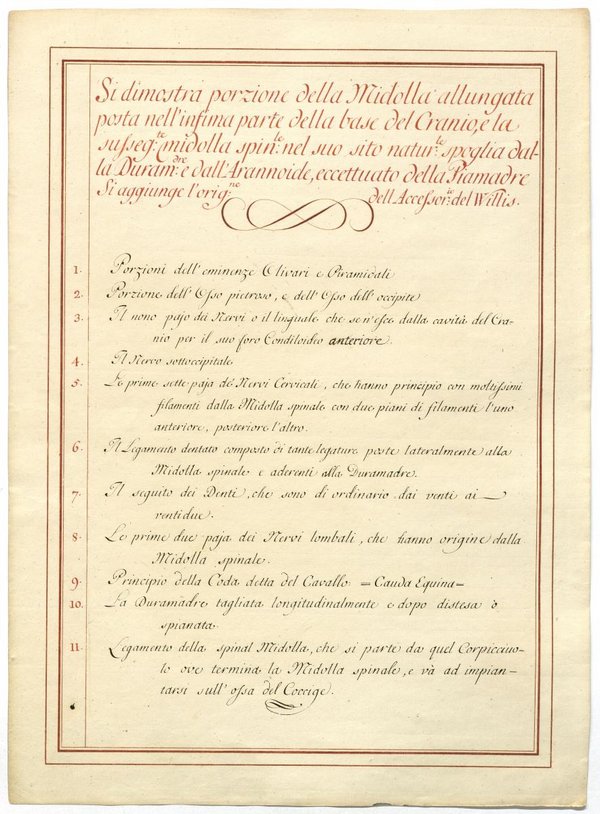 Si dimostra porzione della Midolla allungata
posta nell'infima parte della base del Cranio, e la
susseg.te midolla spin.le nel suo sito natur.le spoglia dal-
la Duram.dre e dall'Arannoide, eccettuato della Piamadre
Si aggiunge l'orig.ne dell'Accessor.io del Willis.
1. Porzioni dell'eminenze Olivari e Piramidali
2. Porzione dell'Osso pietroso, e dell'Osso dell'occipite
3. Il nono pajo dei Nervi o il linguale che se n'esce dalla cavità del Cra-
nio per il suo foro Condiloideo anteriore.
4. Il Nervo sottoccipitale
5. Le prime sette paja de Nervi Cervicali, che hanno principio con moltissimi
filamenti dalla Midolla spinale con due piani di filamenti l'uno
anteriore, posteriore l'altro.
6. Il Legamento dentato composto di tante legature poste lateralmente alla
Midolla spinale e aderenti alla Duramadre.
7. Il seguito dei Denti, che sono di ordinario dai venti ai
ventidue.
8. Le prime due paja dei Nervi lombali, che hanno origine dalla
Midolla spinale.
9. Principio della Coda detta del Cavallo = Cauda Equina =
10. La Duramadre tagliata longitudinalmente e dopo distesa ò
spianata.
11. Legamento della spinal Midolla, che si parte da quel Corpicciuo-
lo ove termina la Midolla spinale, e và ad impian-
tarsi sull'ossa del Coccige.